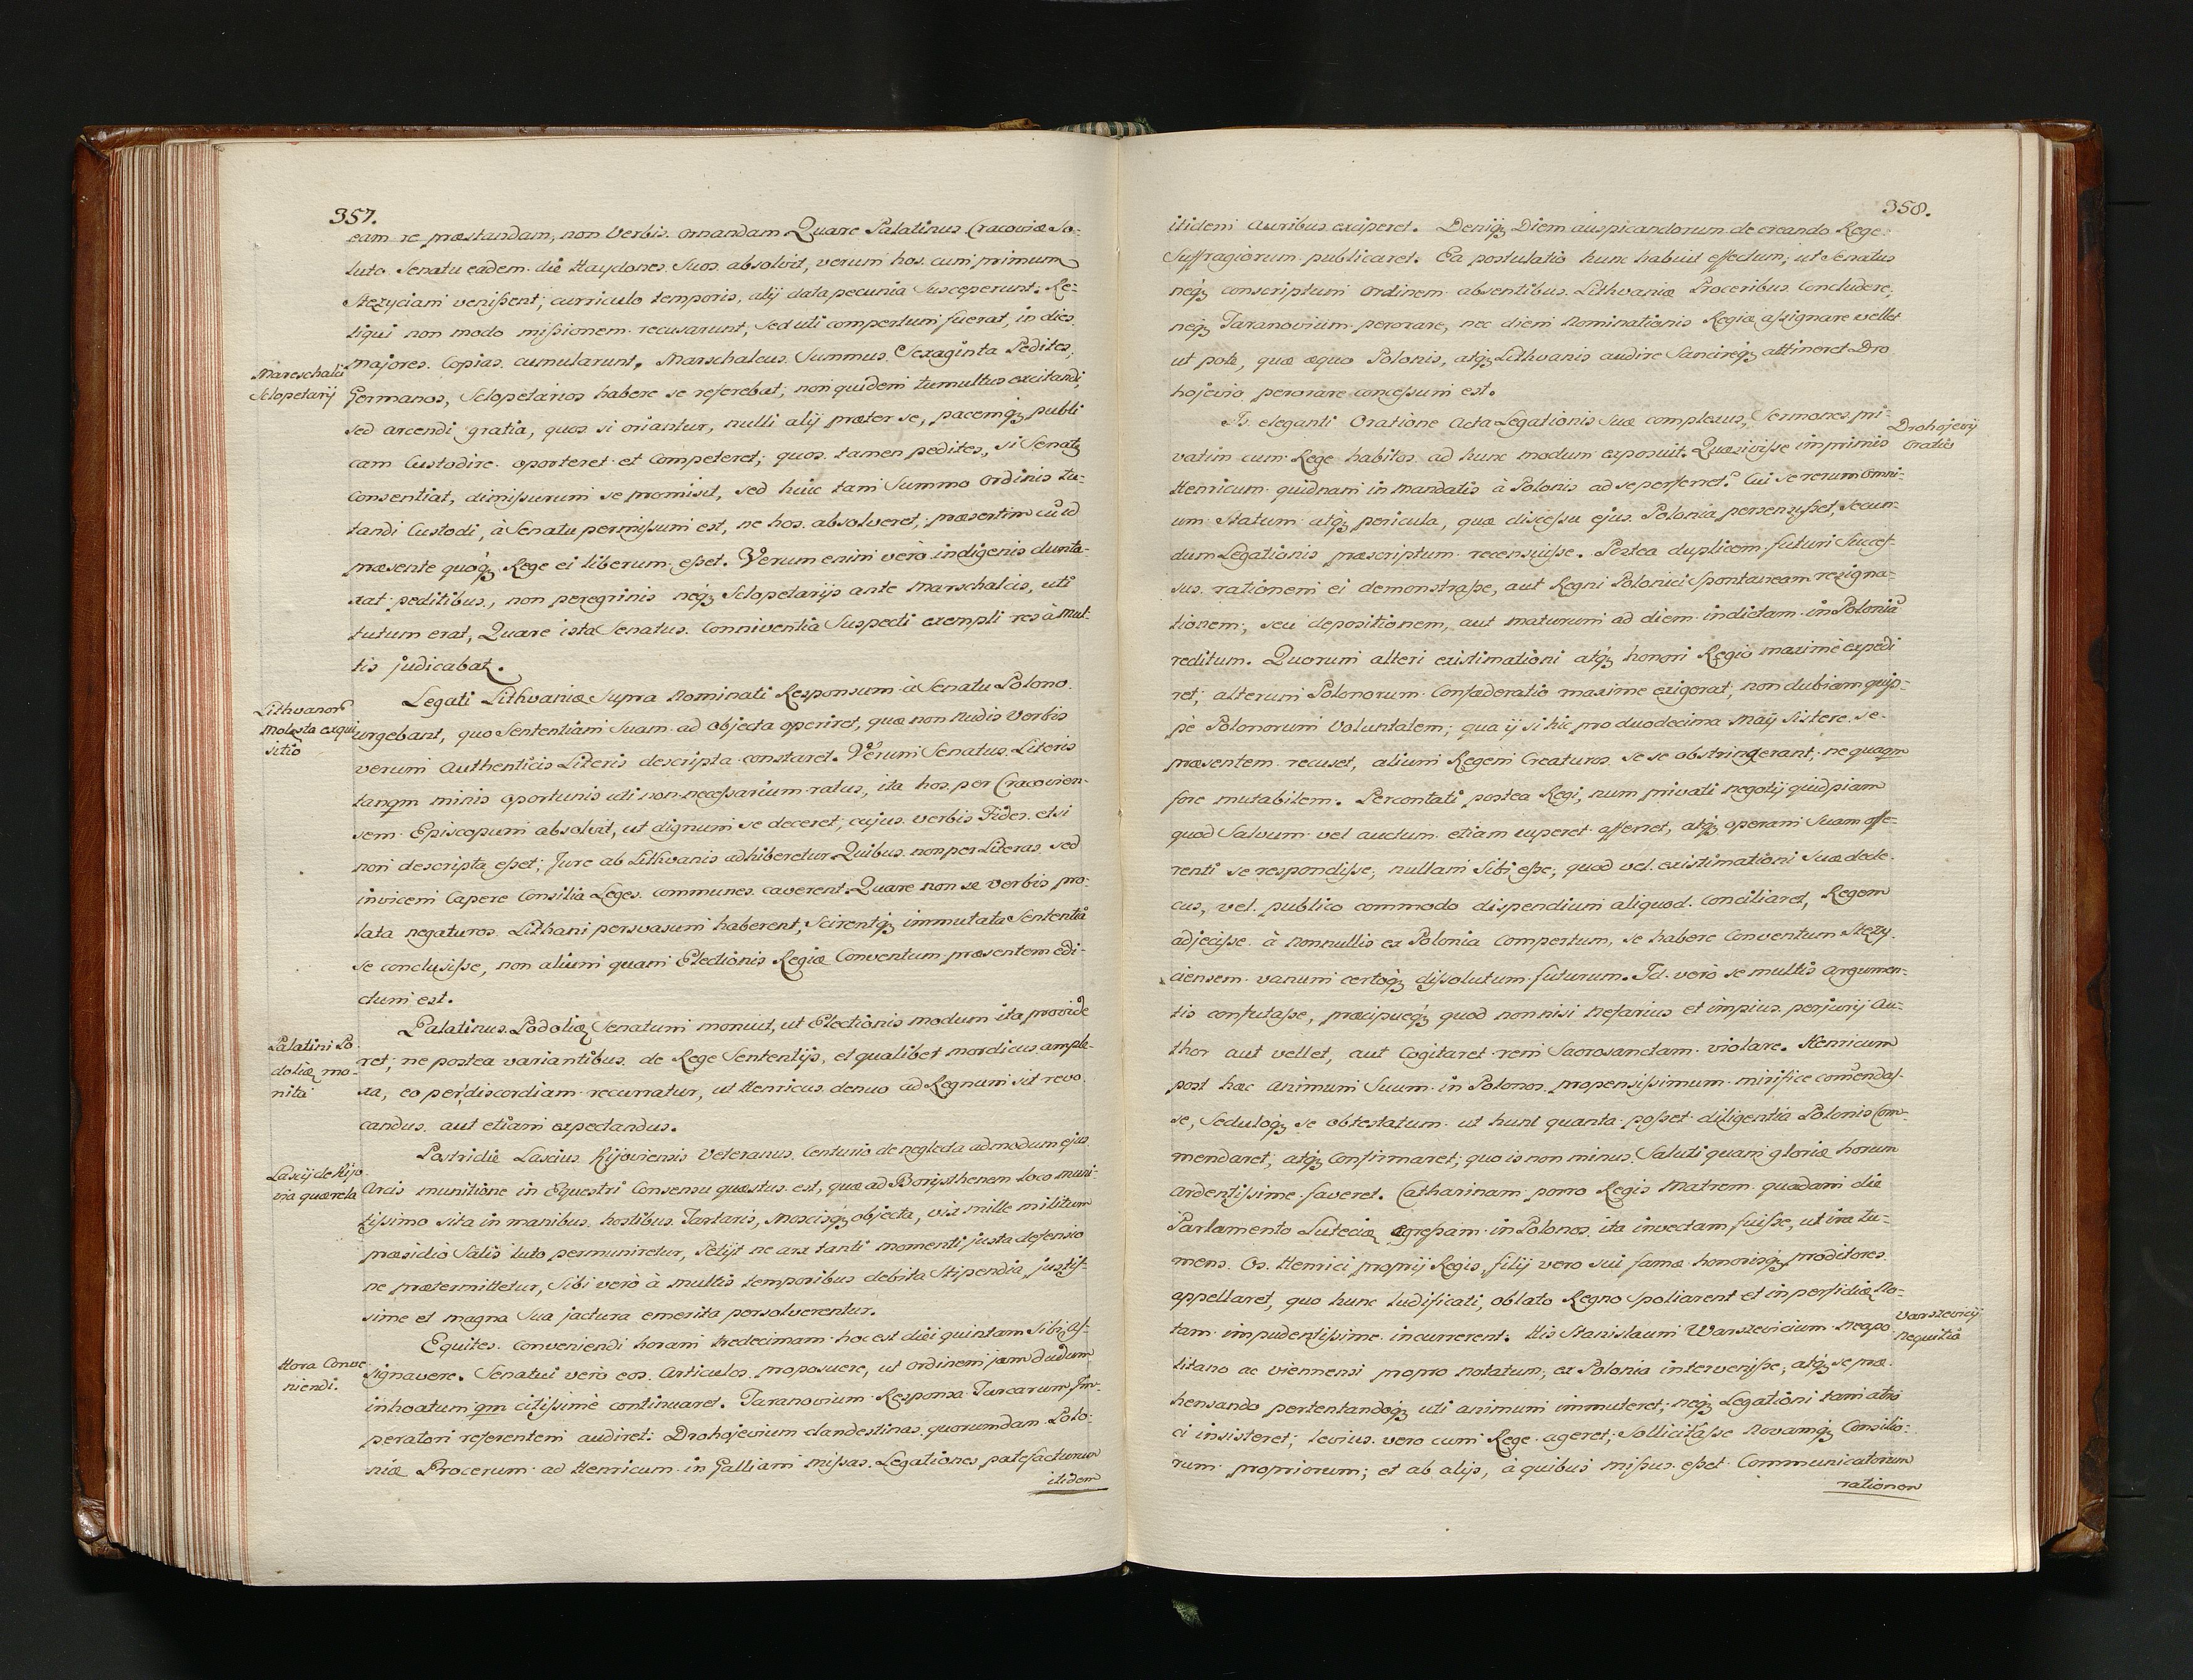 357.
eam re præstandam, non Verbis ornandam Quare Palatinus Cracoviæ So-
luto Senatu eadem die Haydones Suos absolvit, verum hos cum primum
Stezyciam venissent, curriculo temporis, alij data pecunia Susceperunt. Re-
liqui non modo missionem recusarunt, sed uti compertum fuerat, in dies
majores Copias cumularunt, Marschalcus Summus Sexaginta Pedites,
Mareschalci
Sclopetarij
Germanos, Sclopetarios habere se referebat, non quidem tumultus excitandi,
sed arcendi gratia, quos si oriantur, nulli alij præter se, pacemq; publi
cam Custodire oporteret et Competeret; quos tamen pedites, si Senatq
Consentiat, dimissurum se promisit, sed huic tam Summo Ordinis tu-
tandi Custodi, à Senatu permissum est, ne hos absolveret, præsertim cũ id
præsente quoq; Rege ei liberum esset. Verum enim verò indigenis dunta-
xat peditibus, non peregrinis neq; Sclopetarijs ante Marschalcis, uti
tutum erat, Quare ista Senatus Conniventia Suspecti exempli res à mul-
tis judicabat.
Legati Lithvaniæ Supra Nominati Responsum à Senatu Polono
Lithvanorũ
molesta exqui
sitio
urgebant, quo Sententiam Suam ad objecta aperiret, quæ non Nudis Verbis
verum Authenticis Literis descripta constaret. Verum Senatus Literis
tanqm minis oportunis uti non necessarium ratus, ita hos per Cracovien-
sem Episcopum absolvit, ut dignum se deceret, cujus verbis Fides etsi
non descripta esset; Jure ab Lithvanis adhiberetur Quibus non per Literas sed
invicem Capere Consilia Leges communes caverent. Quare non se verbis pro-
lata negaturos Lithani persvasum haberent, Scirentq; immutata Sententiâ
se conclusisse, non alium quam Electionis Regiæ Conventum præsentem edi-
ctum est.
Palatinus Podoliæ Senatum monuit, ut Electionis modum ita provide
Palatini Po
doliæ mo-
nita
ret; ne postea variantibus de Rege Sententijs, et qualibet mordicus ample-
xa, eo per discordiam recurratur, ut Henricus denuo ad Regnum sit revo
candus aut etiam expectandus.
Postridie Lascius Kijoviensis Veteranus Centurio de neglecta admodum ejus
Lascij de Kijo
via quærela
Arcis munitione in Equestri Consensu quæstus est, quæ ad Boristhenem loco muni-
tissimo sita in manibus hostibus Tartaris, Moscisq; objecta, vix mille militum
præsidio Satis tuto permuniretur, Petijt ne arx tanti momenti justa defensio
ne prætermittetur, Sibi verò à multis temporibus debita Stipendia justis-
sime et magna Sua jactura emerita persolverentur.
Equites conveniendi horam tredecimam hoc est diei quintam Sibi as-
Hora Conve
niendi.
signavere. Senatui verò eos Articulos proposuere, ut ordinem jam dudum
inhoatum qm citissimè continuaret. Taranovium Responsa Turcarum Im-
peratori referentem audiret: Drohojevium clandestinas quorumdam Polo-
niæ Procerum ad Henricum in Galliam missas Legationes patefacturum
itidem
358.
itidem Auribus exciperet. Deniq; Diem auspicandorum de creando Rege
Suffragiorum publicaret. Ea postulatio hunc habuit effectum; ut Senatus
neq; conscriptum Ordinem absentibus Lithvaniæ Proceribus Concludere,
neq; Taranovium perorare, nec diem Nominationis Regiæ assignare vellet
ut pote, quæ æquo Polonis, atq; Lithvanis audire Sancireq; attineret Dro
hojevio perorare concessum est.
Is eleganti Oratione Acta Legationis Suæ complexus, Sermones pri-
Drohojevij
Oratio
vatim cum Rege habitos ad hunc modum exposuit. Quæsivisse imprimis
Henricum quidnam in mandatis à Polonis ad se perferret? Cui se rerum Omni-
um Statum atq; pericula, quæ discessu ejus Polonia persensisset, secun-
dum Legationis præscriptum recensuisse. Postea duplicem futuri Succes-
sus rationem ei demonstrasse, aut Regni Polonici Spontaneam resigna-
tionem, seu depositionem, aut maturum ad diem indictam in Poloniã
reditum. Quorum alteri existimationi atq; honori Regio maximè expedi
ret, alterum Polonorum Confæderatio maxime exigerat, non dubiam quip-
pè Polonorum Voluntatem; qua ij si hic pro duodecima Maij Sistere se
præsentem recuset, alium Regem Creaturos se se obstrinxerant, ne quaqm
fore mutabilem. Percontati postea Regi, num privati negotij quidpiam
quod Salvum vel auctum etiam cuperet afferret, atq; operam Suam offe-
renti se respondisse, nullam Sibi esse, quod vel existimationi Suæ dede-
cus, vel publico commodo dispendium aliquod Conciliaret, Regem
adjecisse à Nonnullis ex Polonia Compertum, se habere Conventum Stezy-
ciensem vanum certoq; dissolutum futurum. Id verò se multis argumen-
tis confutasse, præcipueq; quod non nisi Nefarius et impius perjurij Au-
thor aut vellet, aut Cogitaret rem Sacrosanctam violare. Henricum
post hæc Animum Suum in Polonos propensissimum mirifice com̃endas-
se, Seduloq; se obtestatum ut hunc quanta posset diligentia Polonis Com-
mendaret, atq; Confirmaret; quo is non minus Saluti quam gloriæ horum
ardentissime faveret. Catharinam porro Regis Matrem quadam die
Parlamento Luteciæ egressam in Polonos ita invectam fuisse, ut ira tu-
mens Os Henrici proprij Regis, filij vero sui famæ honorisq; proditores
appellaret, quo hunc ludificati, oblato Regno Spoliarent et in perfidiæ No-
tam impudentissime incurrerent. His Stanislaum Warszevicium Neapo
Varszevicij
Nequitiâ
litano ac Viennensi propro Notatum, ex Polonia intervenisse, atq; se præ-
hensando pertentandoq; uti animum immuteret, neq; Legationi tam atro
ci insisteret, levius vero cum Rege ageret, Sollicitasse Novamq; Consilio-
rum propriorum; et ab alijs, à quibus missus esset Communicatorum
rationem